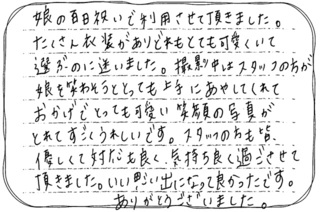 娘の百日祝いで利用させて頂きました。
たくさん衣装がありどれもとても可愛くいて
選ぶのに迷いました。撮影中はスタッフの方が
娘を笑わそうととっても上手にあやしてくれて
おかげでとっても可愛い笑顔の写真が
とれてすごくうれしいです。スタッフの方も皆、
優しくて対応も良く、気持ち良く過ごさせて
頂きました。いい思い出になって良かったです。
ありがとうございました。